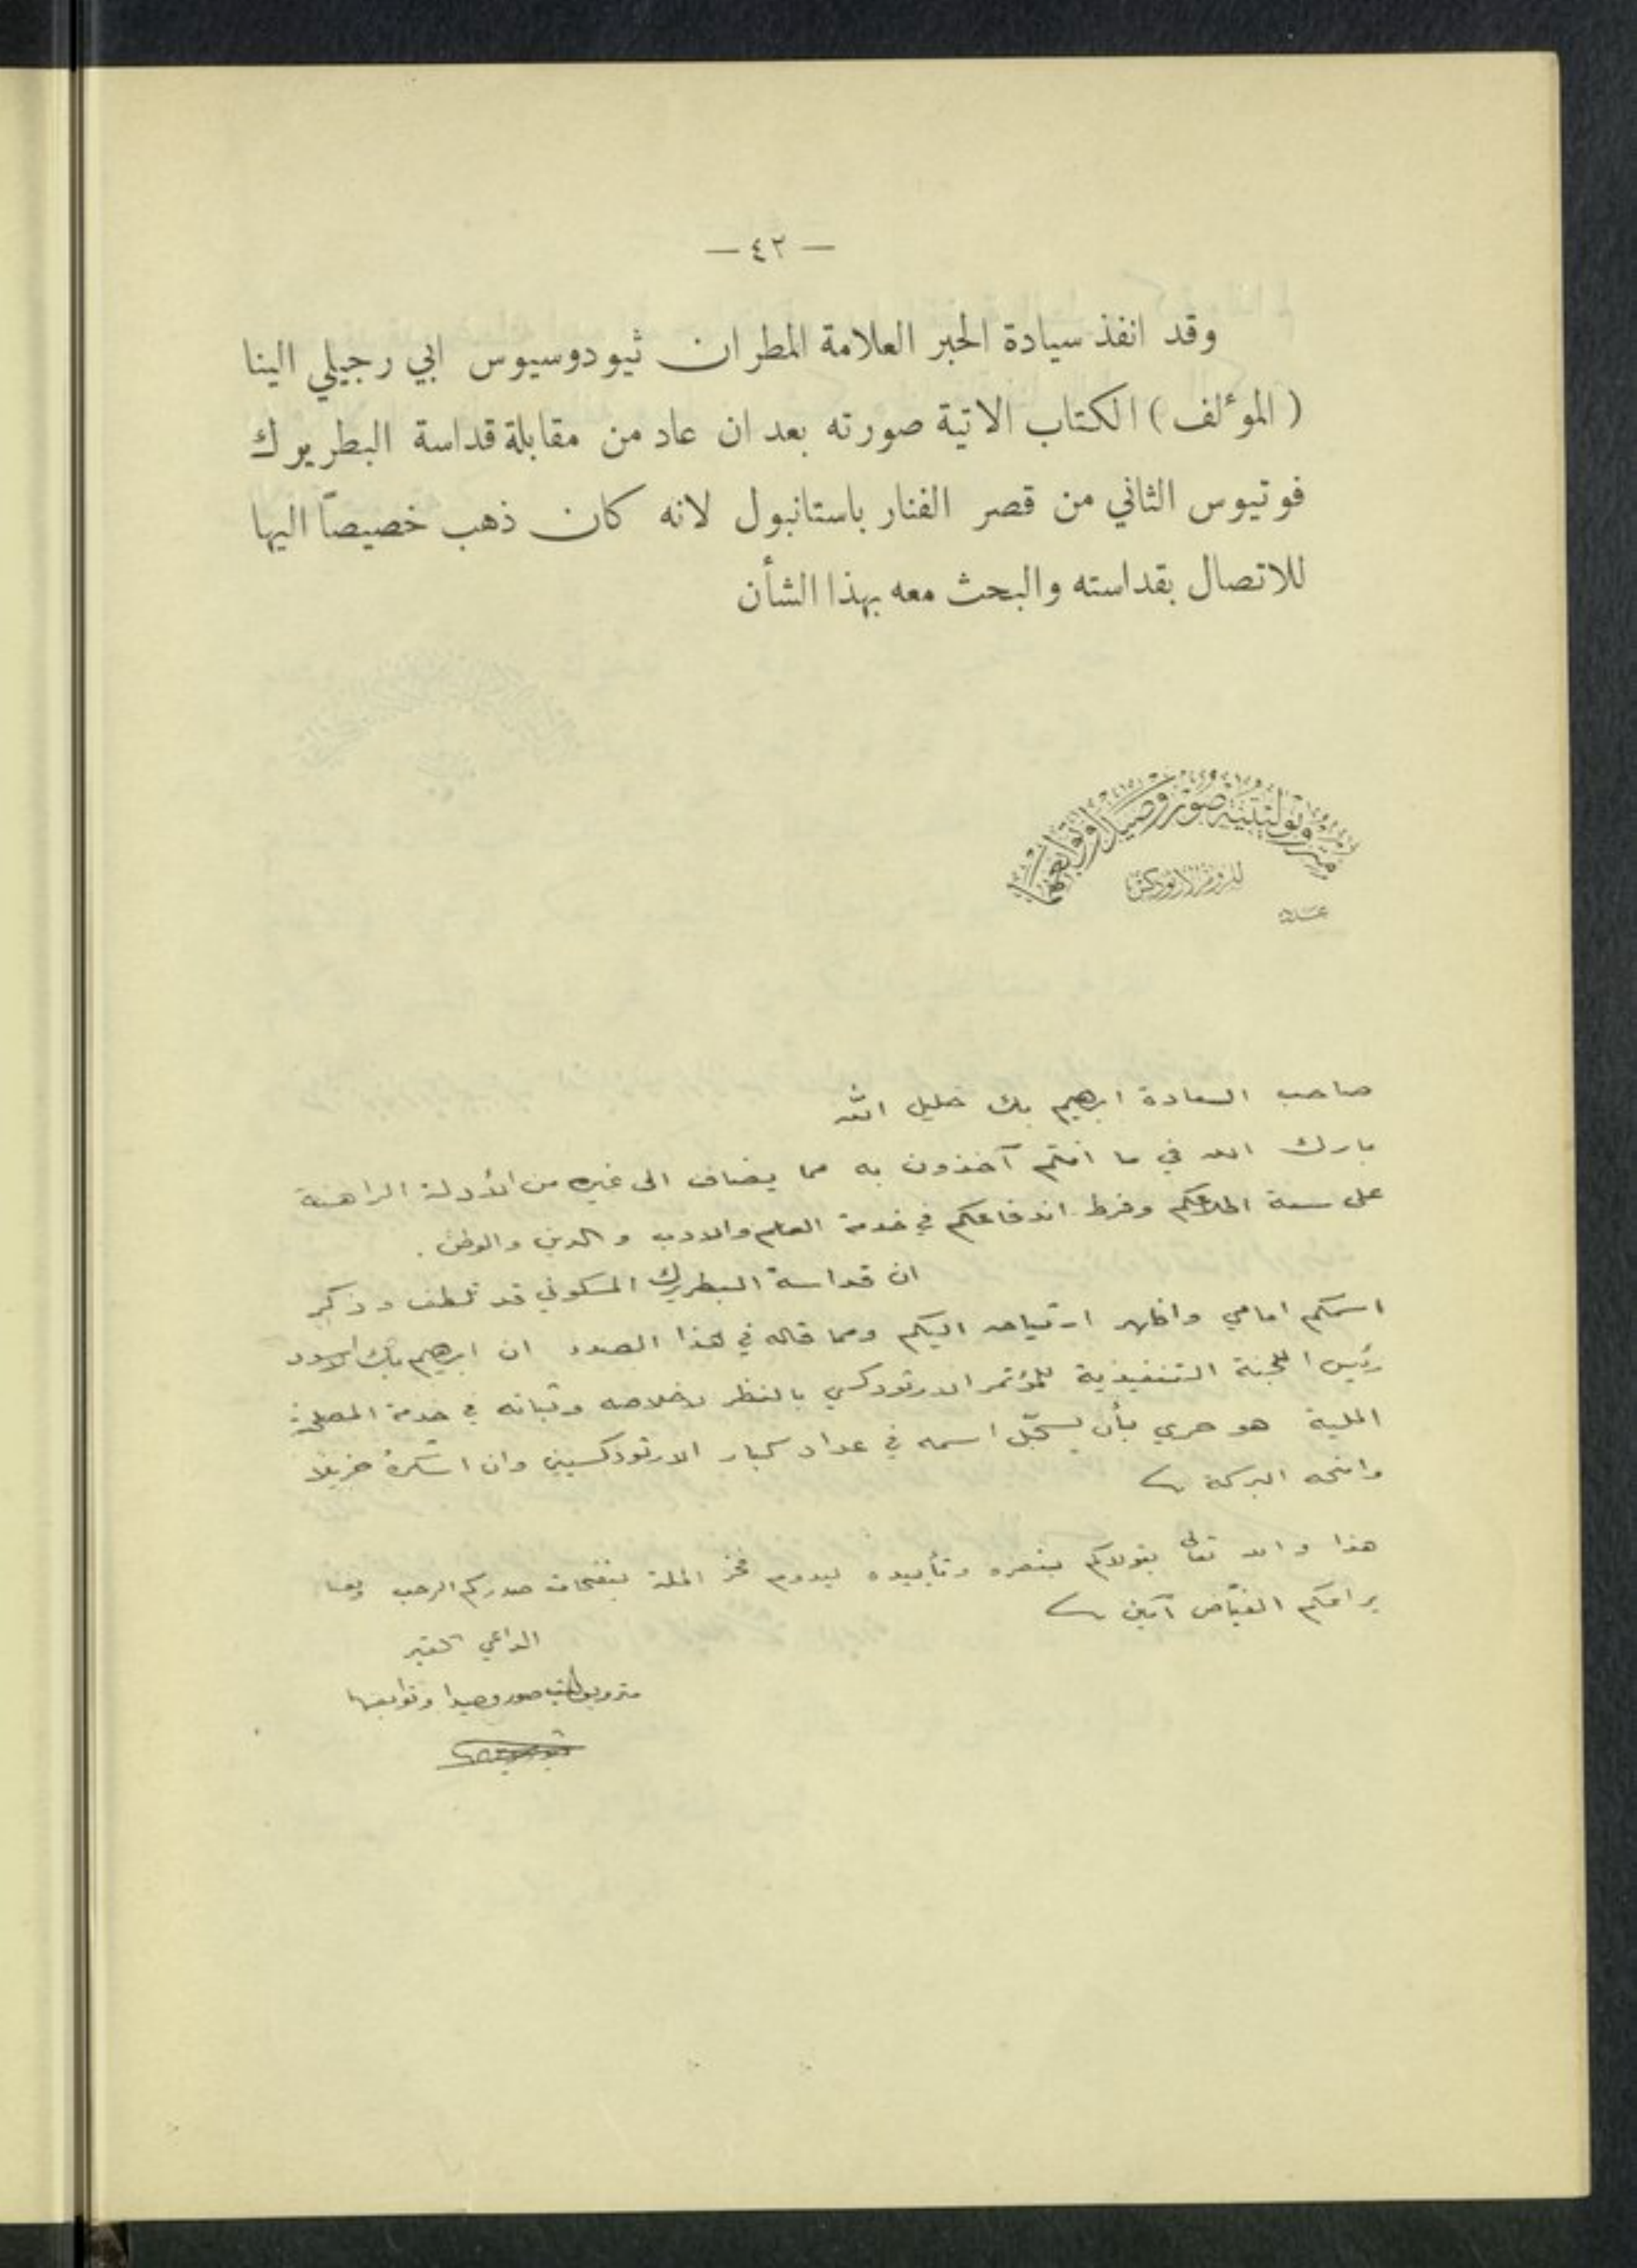 — ٤٢ —
وقد انفذ سيادة الحبر العلامة المطران ثيودوسيوس ابي رجيلي الينا
( المؤلف ) الكتاب الاتية صورته بعد ان عاد من مقابلة قداسة البطريرك
فوتيوس الثاني من قصر الفنار باستانبول لانه كان ذهب خصيصاً اليها
للاتصال بقداسته والبحث معه بهذا الشأن
متروبوليتية صور وصيدا وتوابعهما
للروم الارثوذكس
عدد
صاحب السعادة ابرهيم بك خليل الله
بارك الله في ما انتم آخذون به مما يضاف الى غيره من الأدلة الراهنة
على سعة اطلاعكم وفرط اندفاعكم في خدمة العلم والادب والدين والوطن .
ان قداسة البطريرك المسكوني قد تلطف وذكر
اسمكم امامي واظهر ارتياحه اليكم ومما قاله في هذا الصدد ان ابرهيم بك الاسود
رئيس اللجنة التنفيذية للمؤتمر الارثوذكسي بالنظر لاخلاصه وثباته في خدمة المصلحة
الملية هو حري بأن يسجّل اسمه في عداد كبار الارثوذكسيين وان اشكره جزيلا
وامنحه البركة
هذا والله تعالى يتولاكم بنصره وتأييده ليدوم فخر الملة بنفحات صدركم الرحب
يراعكم الفيّاض آمين
الداعي الفقير
متروبوليت صور وصيدا وتوابعهما